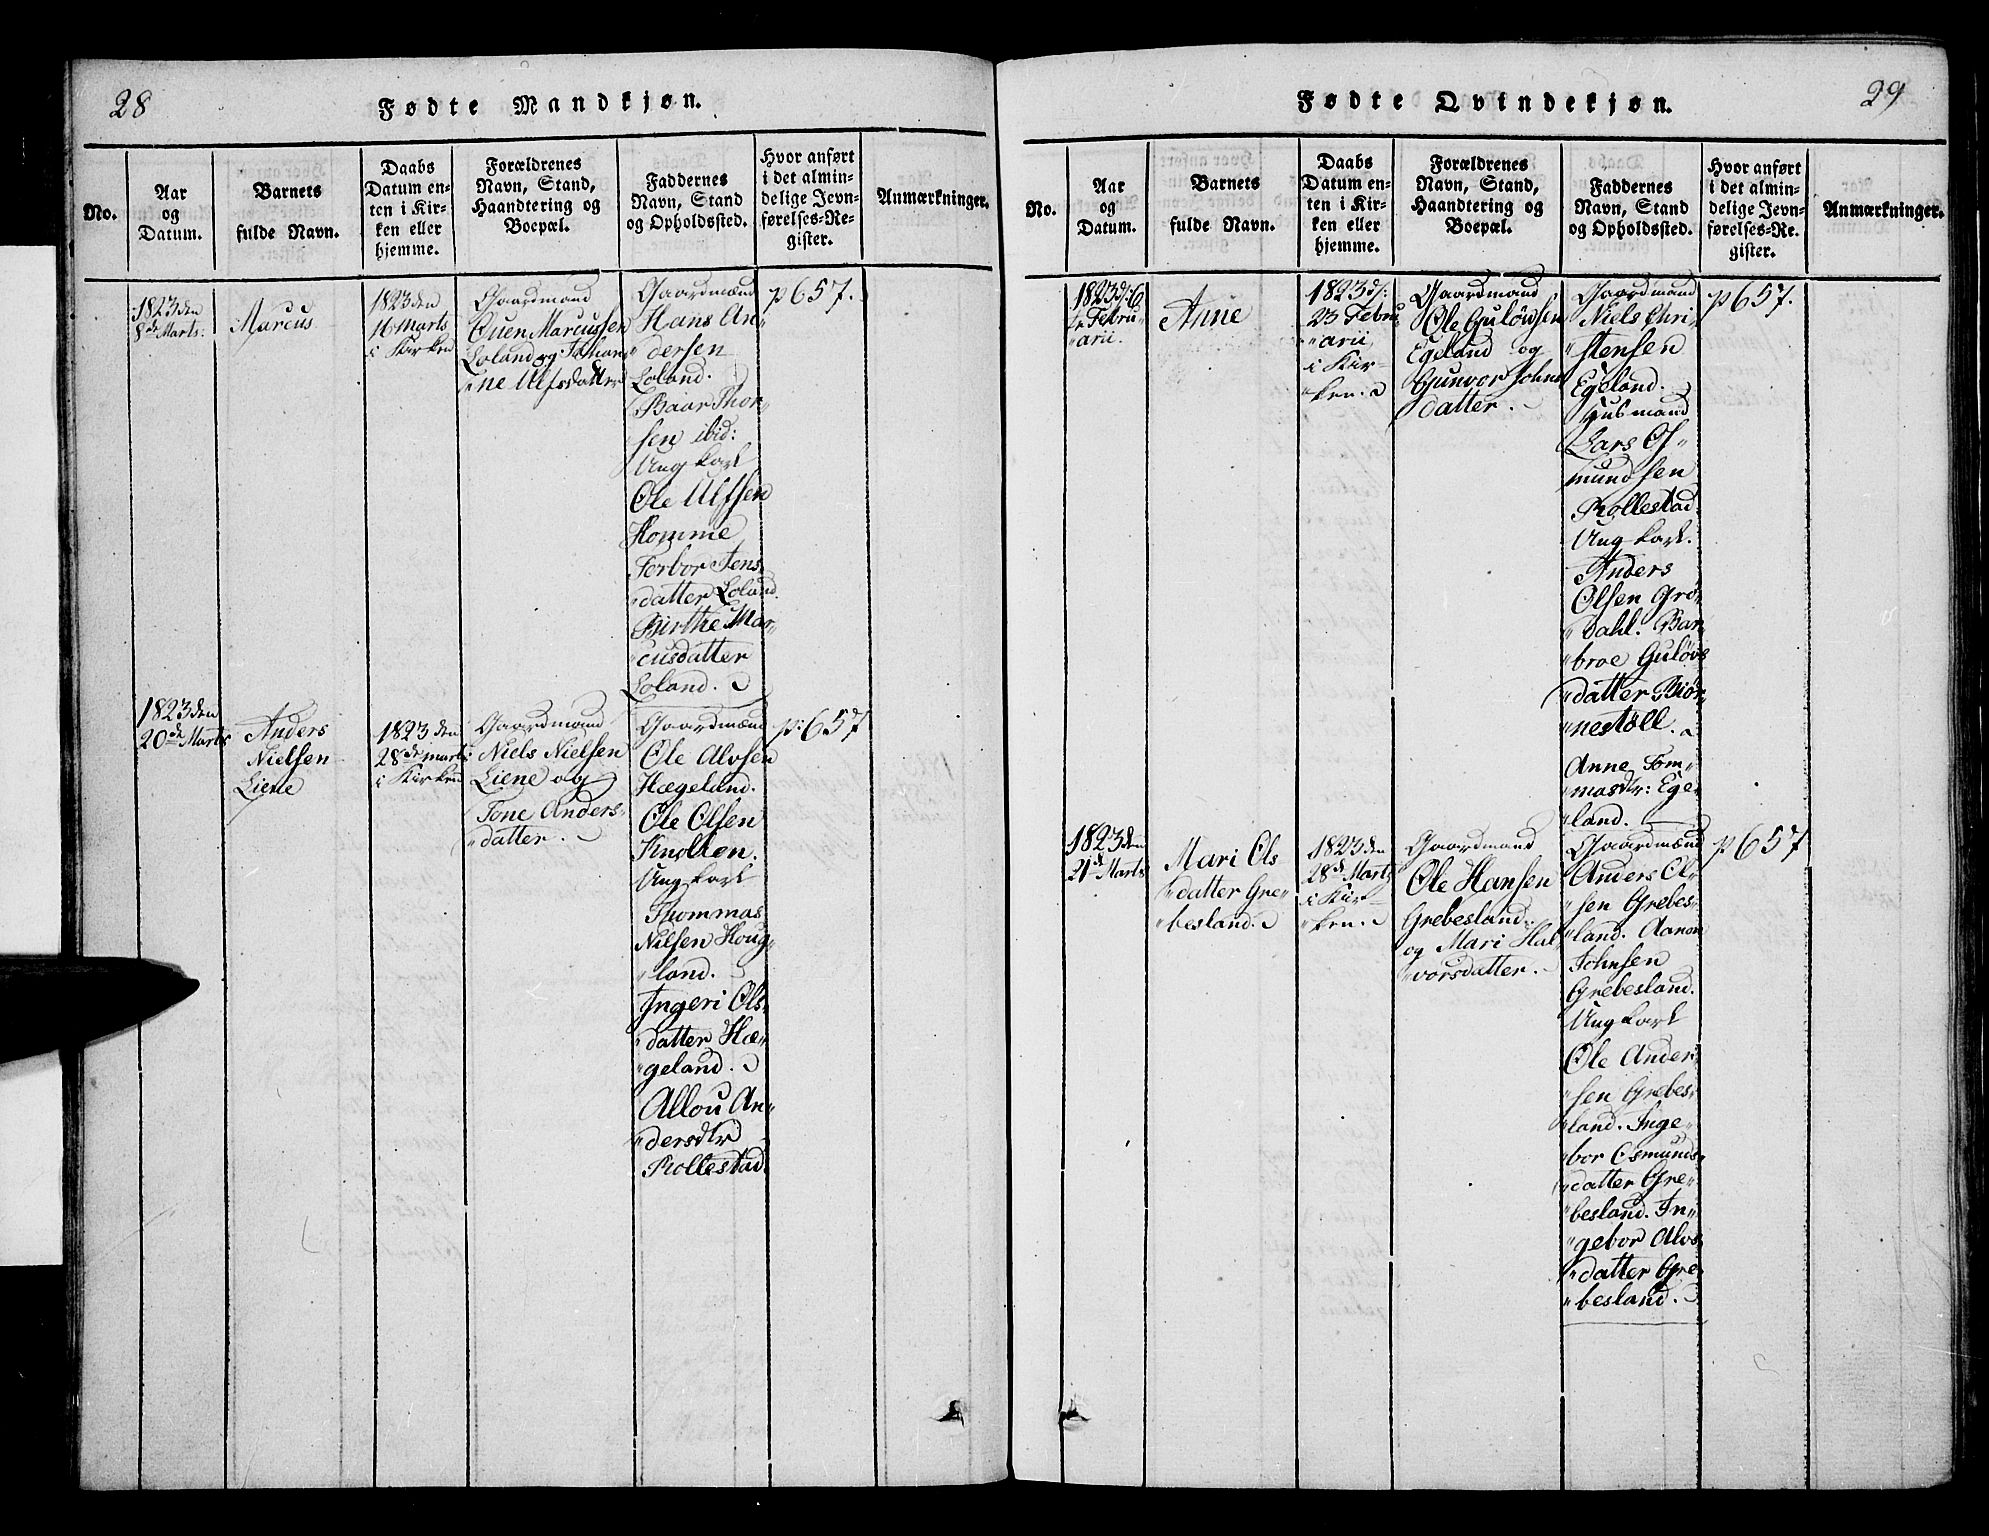 28
Fødte Mandkjøn.
No.
Aar
og
Datum.
Barnets
fulde Navn.
Daabs
Datum en-
ten i Kir-
ken eller
hjemme.
Forældrenes
Navn, Stand,
Haandtering og
Boepæl.
Faddernes
Navn, Stand
og Opholdssted.
Hvor anført
i det almin-
delige Jevn-
førelses-Re-
gister.
Anmærkninger.
1823 den
8de Marts.
Marcus
1823 den
16 Marts
i Kirken
Gaardmand
Ouen Marcussen
Loland og Johan
"ne Ulfsdatter
Gaardmænd
Hans An"
"dersen
Loland.
Baar Thor"
sen ibid:
Ung karl
Ole Ulfsen
Homme
Torbor Jens
"datter Loland.
Birthe Mar"
"cusdatter
Loland.
p 657.
1823 den
20de Marts
Anders
Nielsen
Liene
1823 den
28de marts
i Kirken
Gaardmand
Niels Nielsen
Liene og
Tone Anders"
"datter.
Gaardmænd
Ole Alvsen
Hægeland.
Ole Olsen
Knolten.
Ung karl
Thommas
Nilsen Houg"
"land.
Ingeri Ols"
"datter Hæ"
"geland.
Allou An"
"dersdtr
Rollestad.
p: 657
29
Fødte Qvindekjøn.
No.
Aar
og
Datum.
Barnets
fulde Navn.
Daabs
Datum en-
ten i Kir-
ken eller
hjemme.
Forældrenes
Navn, Stand,
Haandtering og
Boepæl.
Faddernes
Navn, Stand
og Opholdssted.
Hvor anført
i det almin-
delige Jevn-
førelses-Re-
gister.
Anmærkninger.
1823 d: 6
te Febru"
"arii.
Anne
1823 d:
23 Febru
"arii,
i Kir"
"ken.
Gaardmand
Ole Guløvsen
Egeland og
Gunvor Johns
datter.
Gaardmand
Niels Chri"
"stensen
Egeland.
Husmand
Lars Os"
mundsen
Rollestad.
Ung karl.
Anders
Olsen Grø"
"dahl. Bar"
"broe Guløvs
"datter Biør"
"nestøll.
Anne Tom"
"masdtr: Ege"
"land.
p 657.
1823 den
21de Marts
Mari Ols
"datter Gre"
"besland.
1823 den
28de Marts
i Kir"
"ken.
Gaardmand
Ole Hansen
Grebesland.
og Mari Hal"
"vorsdatter.
Gaardmænd
Anders Ol"
"sen Grebes"
"land. Aanon
Johnsen
Grebesland.
Ung karl
Ole Ander"
"sen Grebes"
"land. Inge"
"bor Osmunds"
"datter Gre"
"besland. In"
"gebor Alvs"
"datter Gre"
"besland.
p 657